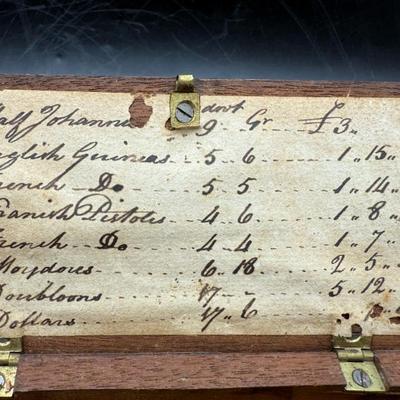 alf Johannes 9 dwt Gr £3,,
nglish Guineas 5 6 1,, 15,,
rench Do 5 5 1,, 14,,
panish Pistoles 4 6 1,, 8,,
rench Do 4 4 1,, 7,,
Moydores 6 18 2,, 5,,
Doubloons 17 - 5,, 12,,
Dollars 17,, 6